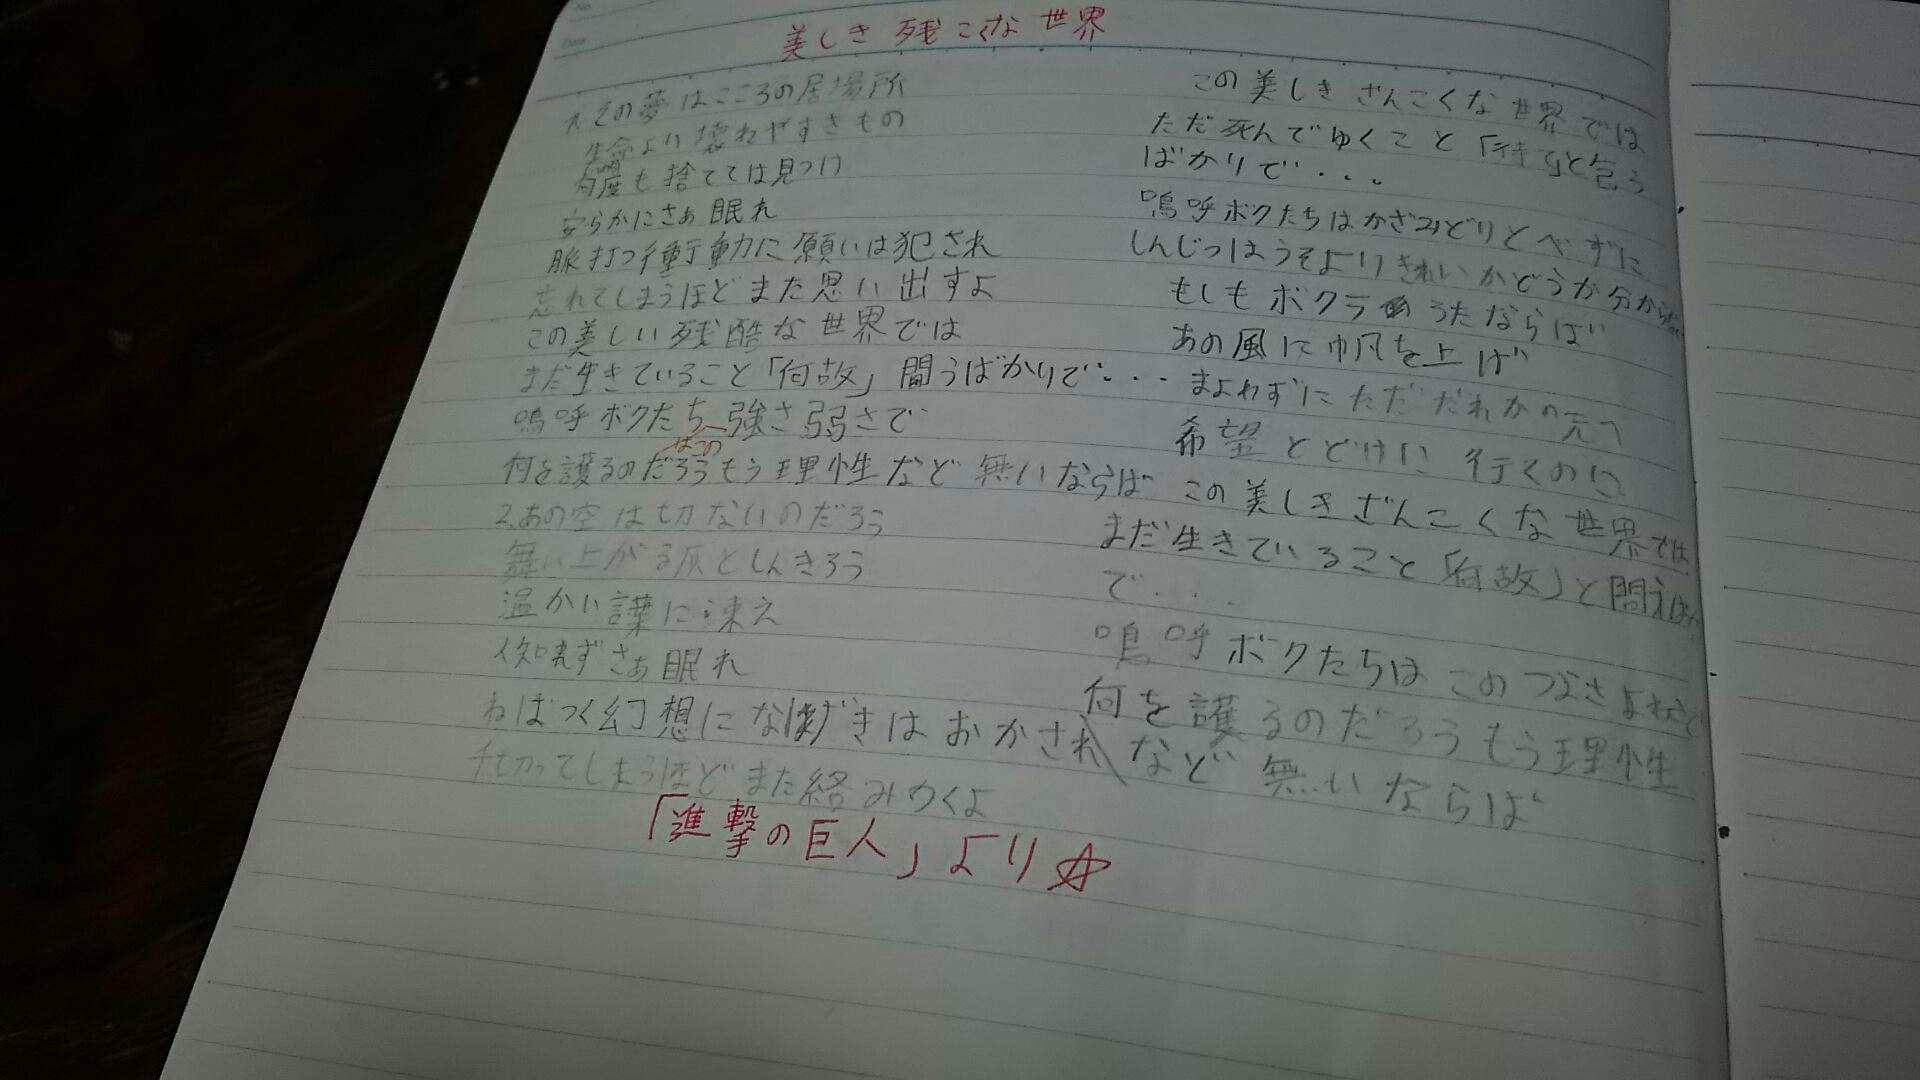 美しき残こくな世界
その夢はこころの居場所
生命より壊れやすきもの
何度も捨てては見つけ
安らかにさぁ眠れ
脈打つ衝動に願いは犯され
忘れてしまうほどまた思い出すよ
この美しい残酷な世界では
まだ生きていること「何故」問うばかりで・・・
嗚呼ボクたち強さ弱さで
はこの
何を護るのだろうもう理性など無いならば
2.あの空は切ないのだろう
舞い上がる灰としんきろう
温かい葉に凍え
人知れずさぁ眠れ
ねばつく幻想になげきはおかされ
千切ってしまうほどまた絡みつくよ
「進撃の巨人」より☆
この美しきざんこくな世界では
ただ死んでゆくこと「待て」と包う
ばかりで・・・
嗚呼ボクたちはかざみどりとべずに
しんじつはうそよりきれいかどうか分からない
もしもボクラ うたならば
あの風に帆を上げ
まよわずにただだれかの元へ
希望とどけに行くのに
この美しきざんこくな世界では
まだ生きていること「何故」と問えば
で・・・
嗚呼ボクたちはこのつよさよわさで
何を護るのだろうもう理性
など無いならば